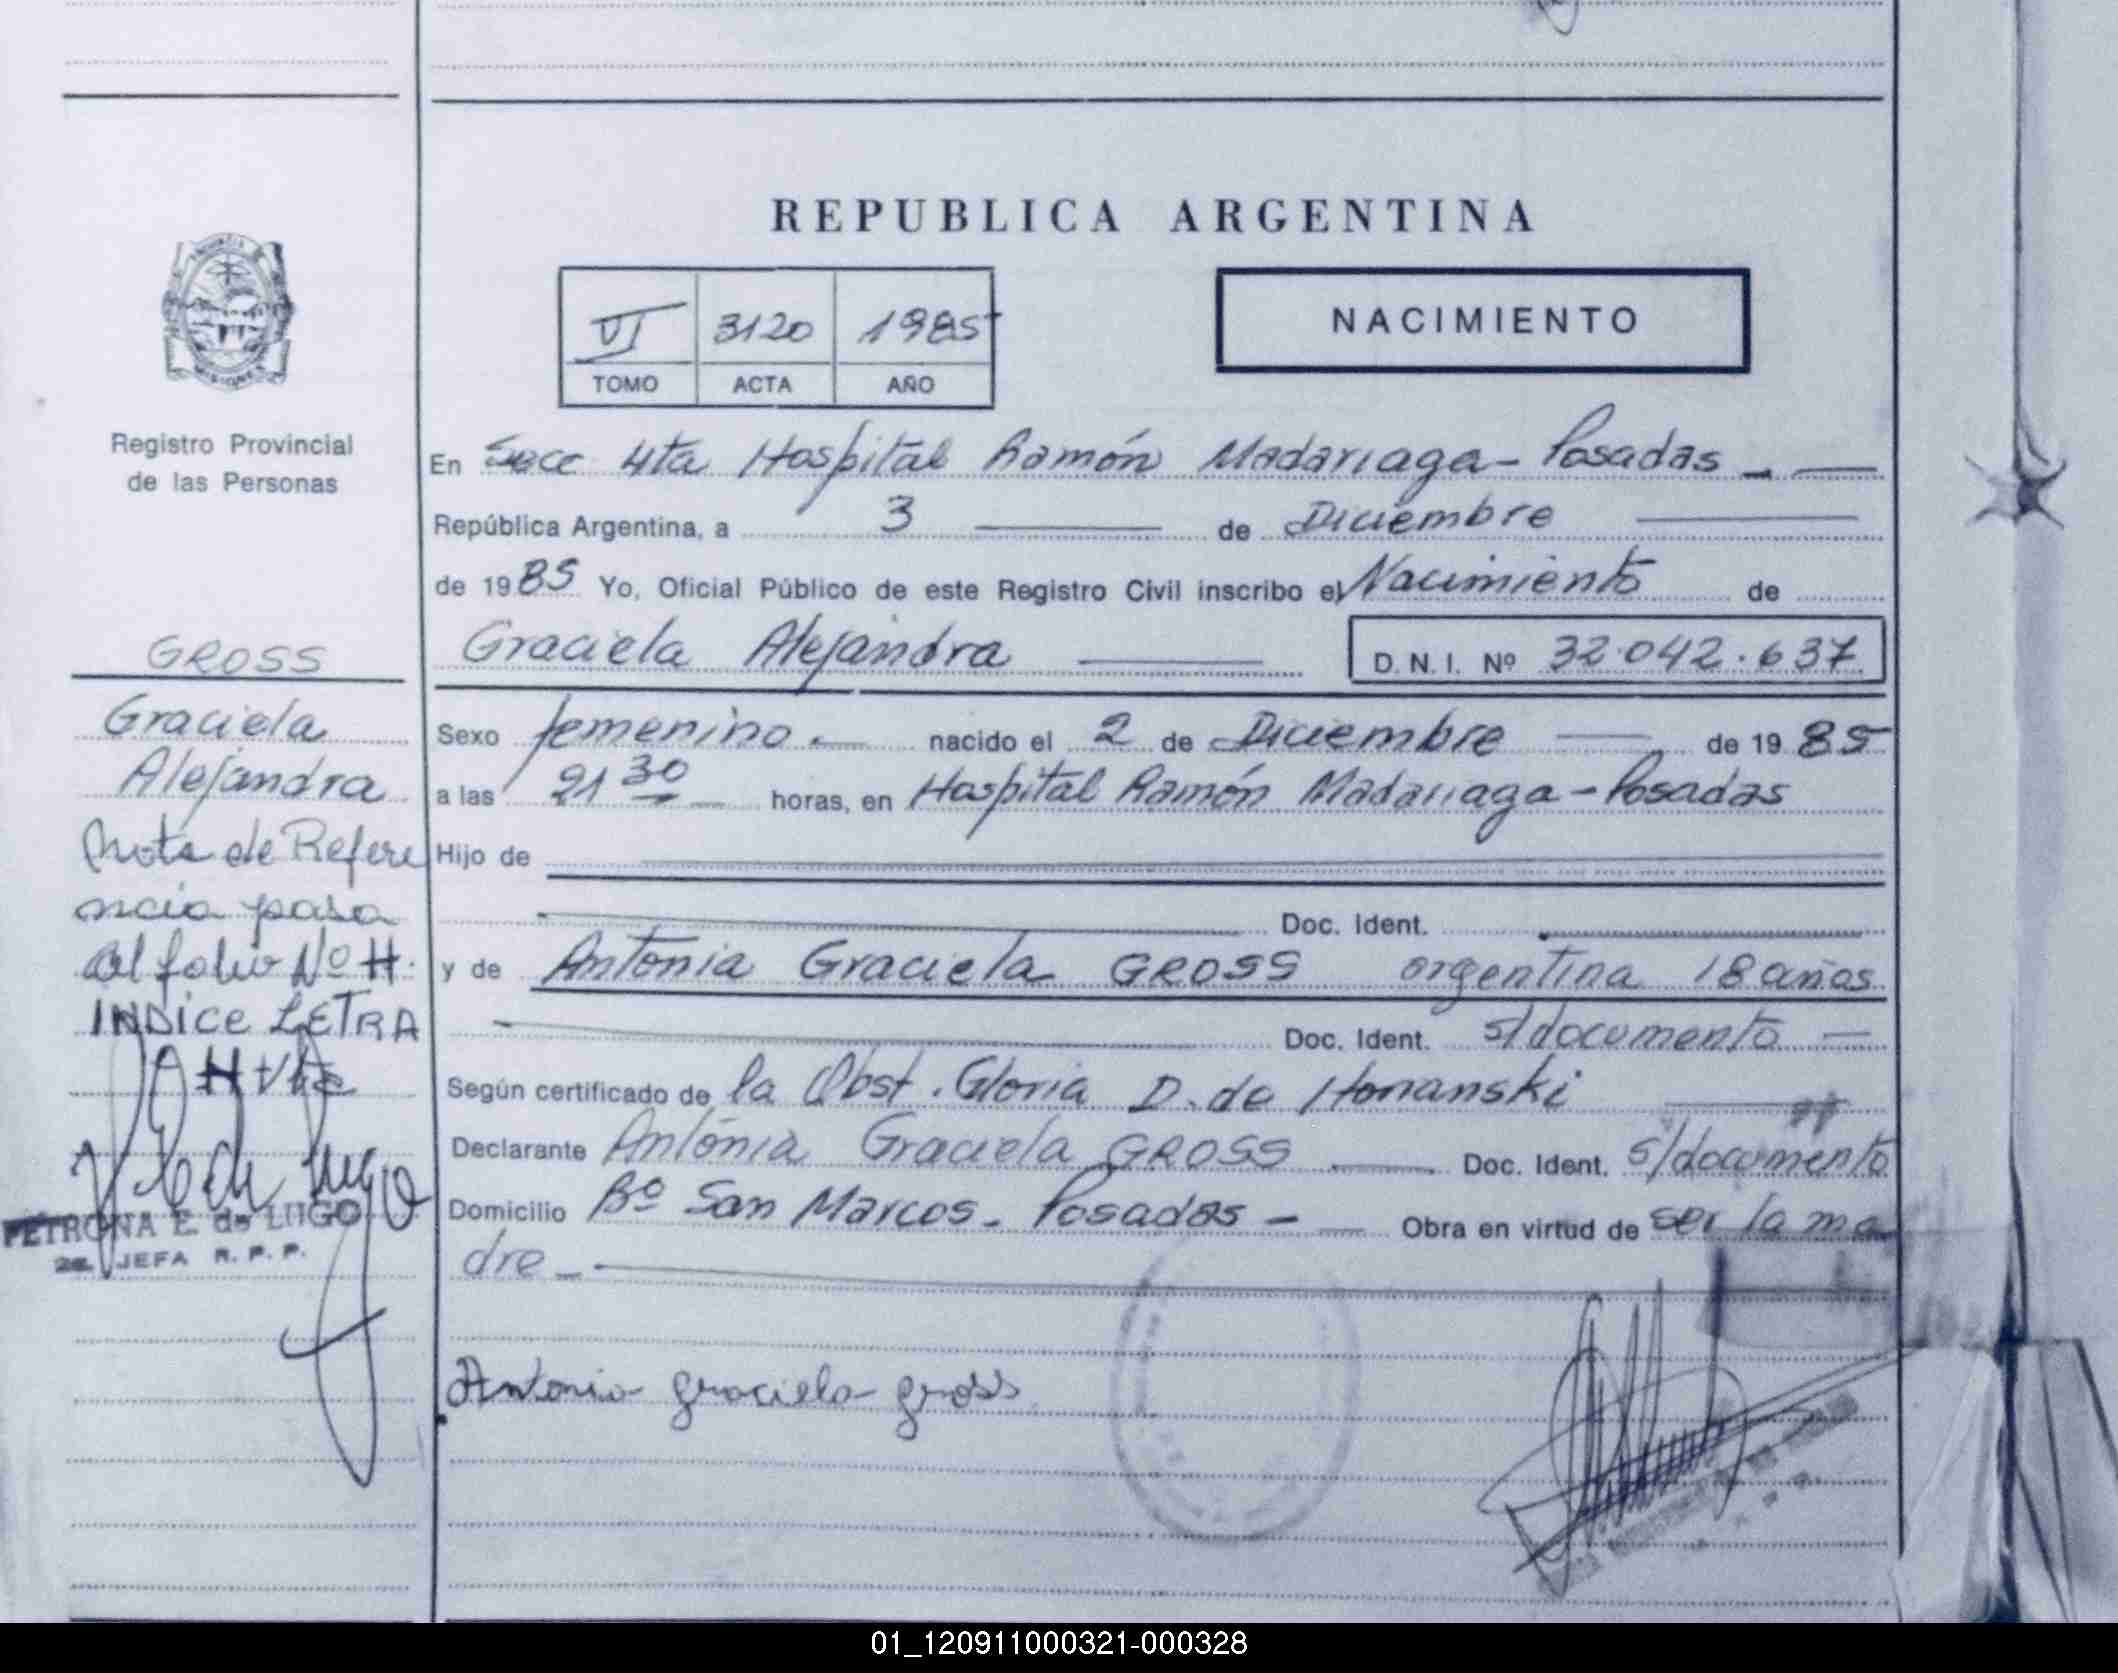 REPUBLICA ARGENTINA
VI 3120 1985
TOMO ACTA AÑO
NACIMIENTO
Registro Provincial
de las Personas
En Secc 4ta Hospital Ramón Madariaga - Posadas
República Argentina, a 3 de Diciembre
de 1985 Yo, Oficial Público de este Registro Civil inscribo el Nacimiento de
Graciela Alejandra D.N.I. Nº 32.042.637
Sexo femenino. nacido el 2 de Diciembre de 1985
a las 21 30 horas, en Hospital Ramón Madariaga - Posadas
Hijo de
Doc. Ident.
y de Antonia Graciela GROSS argentina 18 años
Doc. Ident. s/documento
Según certificado de la Obst. Gloria D. de
Declarante Antonia Graciela GROSS Doc. Ident. s/documento
Domicilio Bº San Marcos - Posadas - Obra en virtud de ser la ma
dre
Antonia graciela gross
GROSS
Graciela
Alejandra
Nota de Refere
ncia pasa
al folio Nº H.
INDICE LETRA
H
PETRONA E. de LUGO
2a. JEFA R. P. P.
01_120911000321-000328